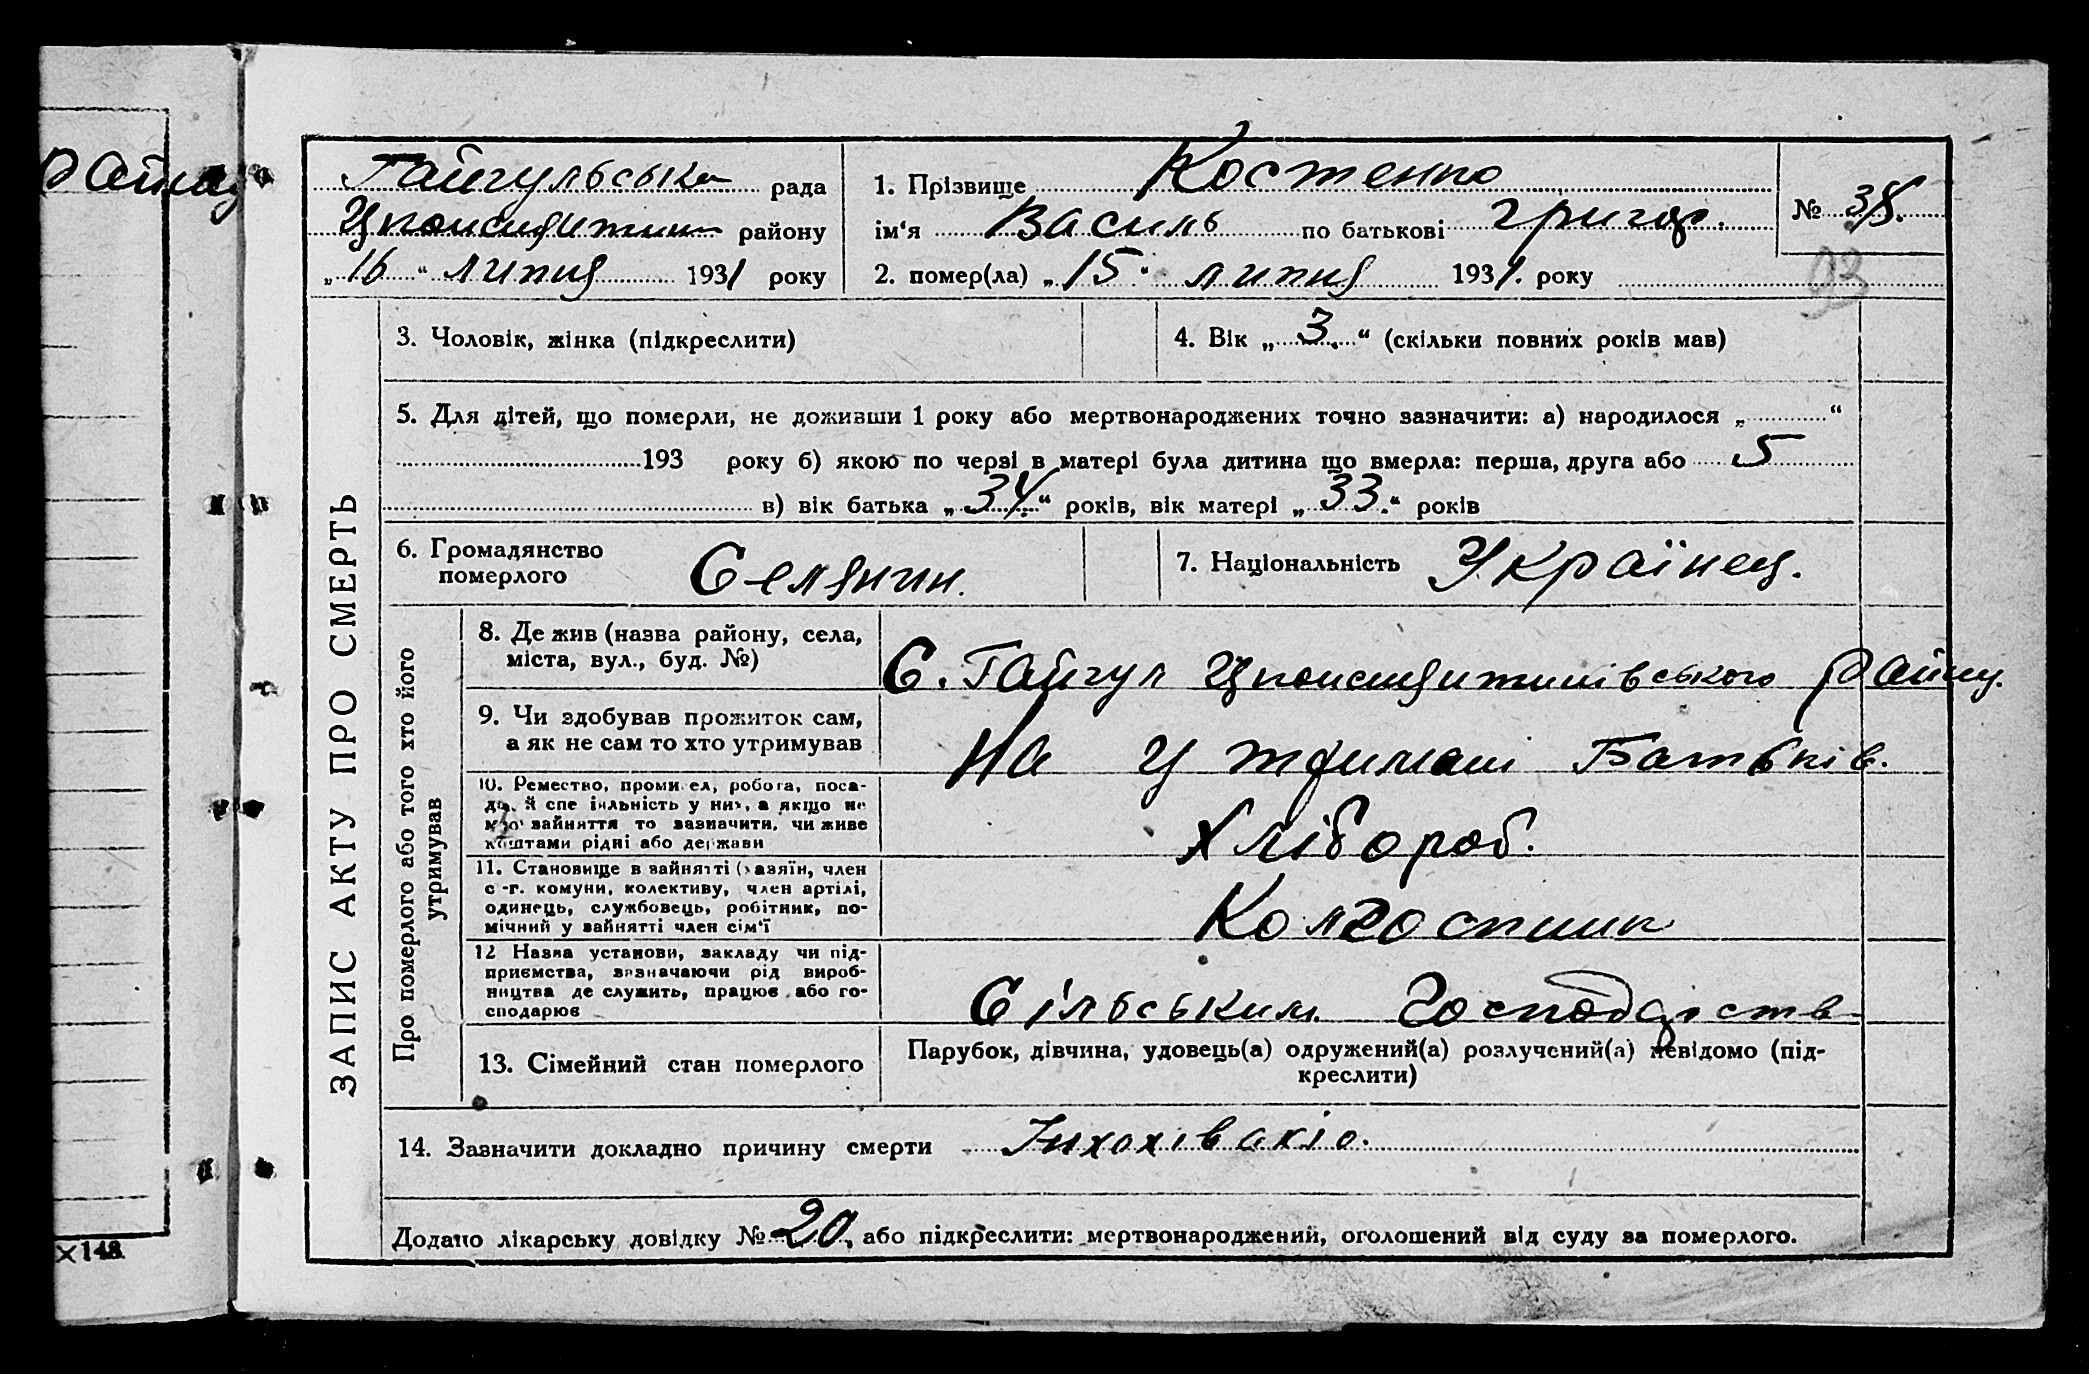 району
Гайчульська рада
району
„16“ липня 1931 року
1. Прізвище Костенко
ім‘я Василь по батькові Григор.
2. помер(ла) „15“ липня 1931. року
№ 38.
93
ЗАПИС АКТУ ПРО СМЕРТЬ
3. Чоловік, жінка (підкреслити)
4. Вік „3.“ (скільки повних років мав)
5. Для дітей, що померли, не доживши 1 року або мертвонароджених точно зазначити: а) народилося „ “
193 року б) якою по черзі в матері була дитина що вмерла: перша, друга або 5
в) вік батька „34.“ років, вік матері „33.“ років
6. Громадянство
померлого Селянин.
7. Національність Українец.
Про померлого або того хто його
утримував
8. Де жив (назва району, села,
міста, вул., буд. №)
С. Гайчул району.
9. Чи здобував прожиток сам,
а як не сам то хто утримував
На утримані Батьків.
10. Ремество, промисел, робота, поса-
да, й спеціяльність у них, а якщо не
має зайняття то зазначити, чи живе
коштами рідні або держави
Хлібороб.
11. Становище в зайнятті (хазяїн, член
с-г. комуни, колективу, член артілі,
одинець, службовець, робітник, по-
мічний у зайнятті член сім‘ї
Колгоспник
12 Назва установи, закладу чи під-
приємства, зазначаючи рід вироб-
ництва де служить, працює або го-
сподарює
Сільським Господарств
13. Сімейний стан померлого
Парубок, дівчина, удовець(а) одружений(а) розлучений(а) невідомо (під-
креслити)
14. Зазначити докладно причину смерти
Додано лікарську довідку № 20, або підкреслити: мертвонароджений, оголошений від суду за померлого.
х 148